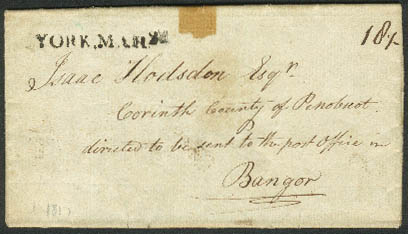 YORK.MAR
18½
Isaac Hodsdon Esqr.
Corinth County of Penobscot
directed to be sent to the post Office in
Bangor